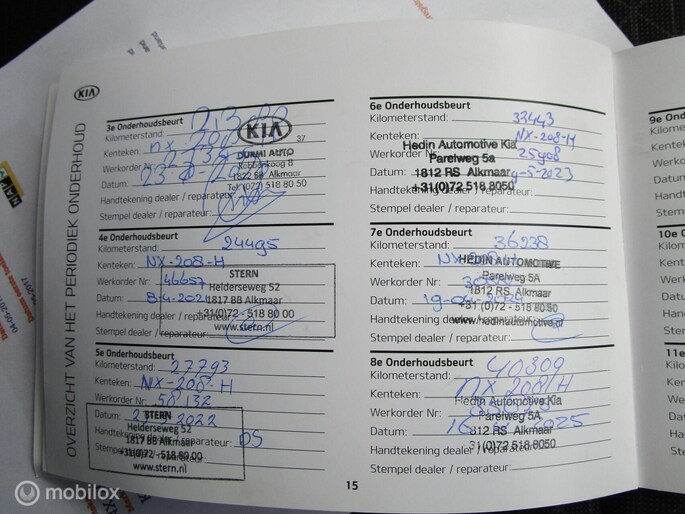 KIA
OVERZICHT VAN HET PERIODIEK ONDERHOUD
3e Onderhoudsbeurt
Kilometerstand:
KIA
37
Kenteken:
DURMI AUTO
Werkorder Nr:
Robbenkoog 8
1822 BB Alkmaar
Datum:
Tel. (072) 518 80 50
Handtekening dealer / reparateur:
Stempel dealer / reparateur:
4e Onderhoudsbeurt
Kilometerstand: 24495
Kenteken: NX-208-H
STERN
Werkorder Nr: 46657
Helderseweg 52
Datum: 8-4-2021
1817 BB Alkmaar
Handtekening dealer / reparateur:
+31(0)72 - 518 80 00
Stempel dealer / reparateur:
www.stern.nl
5e Onderhoudsbeurt
Kilometerstand: 27793
Kenteken: NX-208-H
Werkorder Nr: 50132
Datum: 2022
STERN
Helderseweg 52
Handtekening dealer / reparateur: DS
1817 BB Alkmaar
+31(0)72 - 518 80 00
Stempel dealer / reparateur:
www.stern.nl
6e Onderhoudsbeurt
Kilometerstand: 33443
Kenteken: NX-208-H
Hedin Automotive Kia
Werkorder Nr: 25908
Parelweg 5a
Datum: 9-5-2023
1812 RS Alkmaar
Handtekening dealer / reparateur:
+31(0)72 518 8050
Stempel dealer / reparateur:
7e Onderhoudsbeurt
Kilometerstand: 36238
Kenteken:
HEDIN AUTOMOTIVE
Werkorder Nr:
Parelweg 5A
Datum:
1812 RS Alkmaar
+31 (0)72 - 518 8050
Handtekening dealer / reparateur:
www.hedinautomotive.nl
Stempel dealer / reparateur:
8e Onderhoudsbeurt
Kilometerstand: 40309
Kenteken: NX 208 H
Hedin Automotive Kia
Werkorder Nr:
Parelweg 5A
Datum: 2025
1812 RS Alkmaar
Handtekening dealer / reparateur:
+31(0)72 518 8050
Stempel dealer / reparateur:
15
9e On
Kilome
Kentek
Werko
Datum
Handt
Stemp
10e O
Kilom
Kente
Werk
Datu
Hand
Stem
11e
mobilox